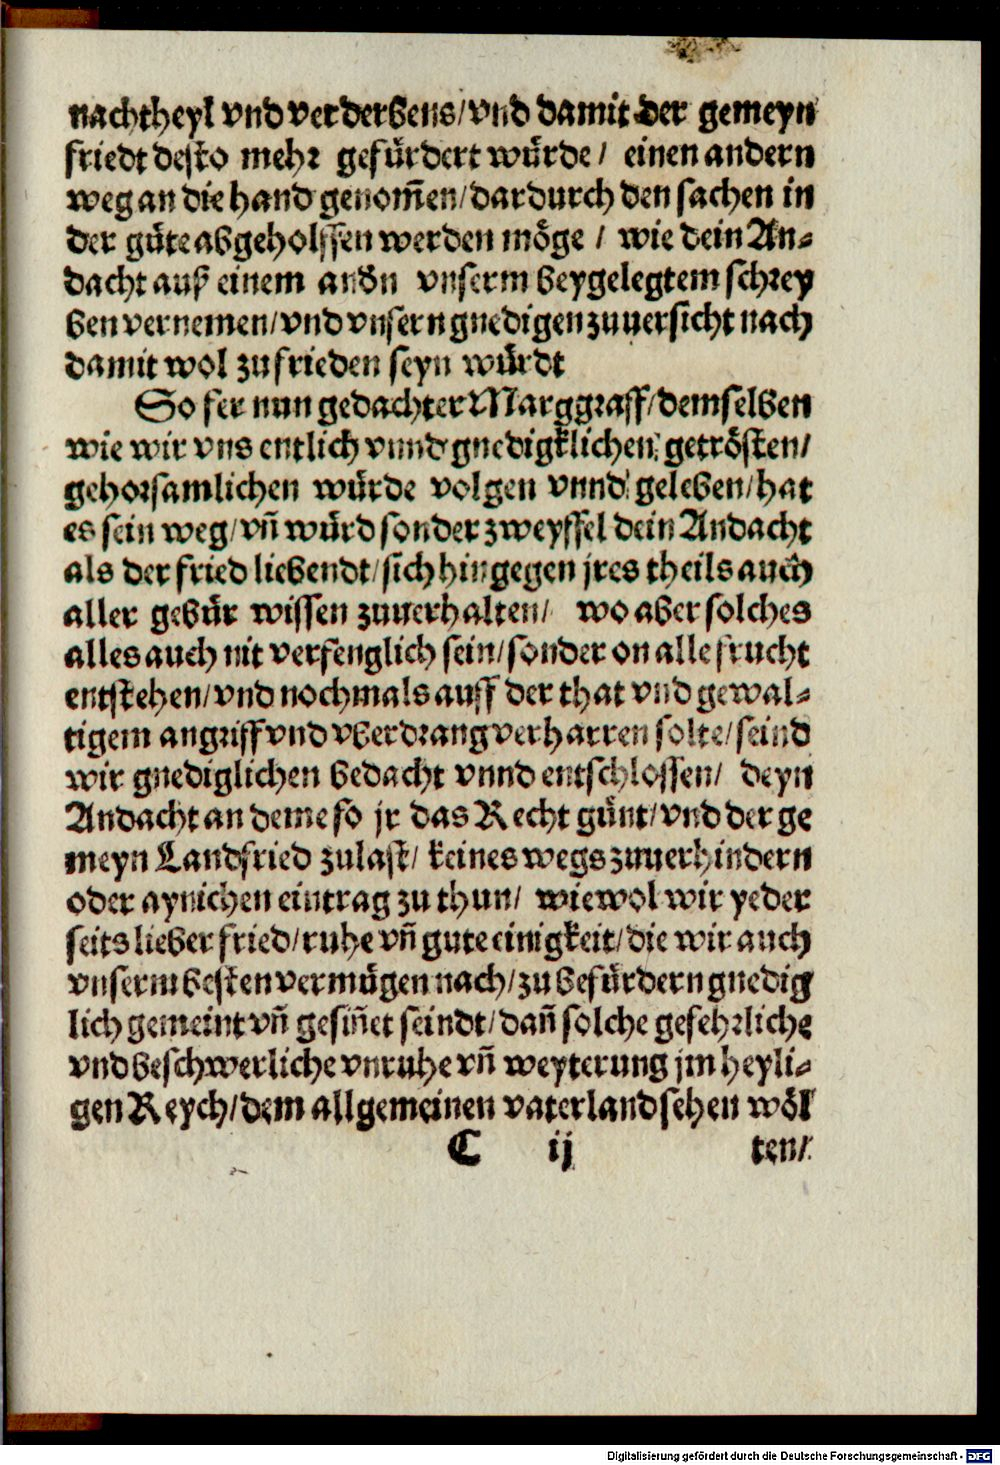 nachtheyl vnd verderbens/vnd damit der gemeyn
friedt desto mehr gefürdert würde/ einen andern
weg an die hand genom̃en/dardurch den sachen in
der güte abgeholffen werden möge / wie dein An⸗
dacht auß einem andn vnserm beygelegtem schrey
ben vernemen/vnd vnsern gnedigen zuuersicht nach
damit wol zu frieden seyn würdt
So fer nun gedachter Marggraff/demselben
wie wir vns entlich vnnd gnedigklichen getrösten/
gehorsamlichen würde volgen vnnd geleben/hat
es sein weg/vñ würd sonder zweyffel dein Andacht
als der fried liebendt/sich hingegen jres theils auch
aller gebür wissen zuuerhalten/ wo aber solches
alles auch nit verfenglich sein/sonder on alle frucht
entstehen/vnd nochmals auff der that vnd gewal⸗
tigem angriff vnd vberdrang verharren solte/seind
wir gnediglichen bedacht vnnd entschlossen/ deyn
Andacht an deme so jr das Recht günt/vnd der ge
meyn Landfried zulast/ keines wegs zuuerhindern
oder aynichen eintrag zu thun/ wiewol wir yeder
seits lieber fried/ruhe vñ gute einigkeit/die wir auch
vnserm besten vermügen nach/zu befürdern gnedig
lich gemeint vñ gesiñet seindt/dañ solche gefehrliche
vnd beschwerliche vnruhe vñ weyterung jm heyli⸗
gen Reych/dem allgemeinen vaterland sehen wöl
C ij ten/
Digitalisierung gefördert durch die Deutsche Forschungsgemeinschaft - DFG